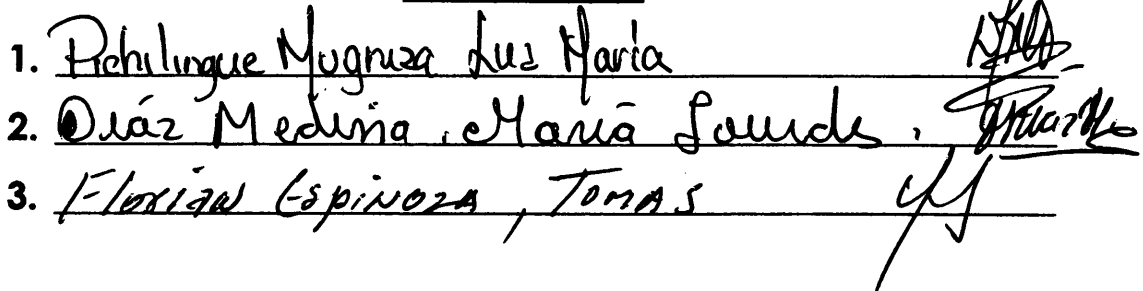 1. Pichilingue Mugruza Luz María
2. Díaz Medina, María Lourdes.
3. Florián Espinoza, Tomas